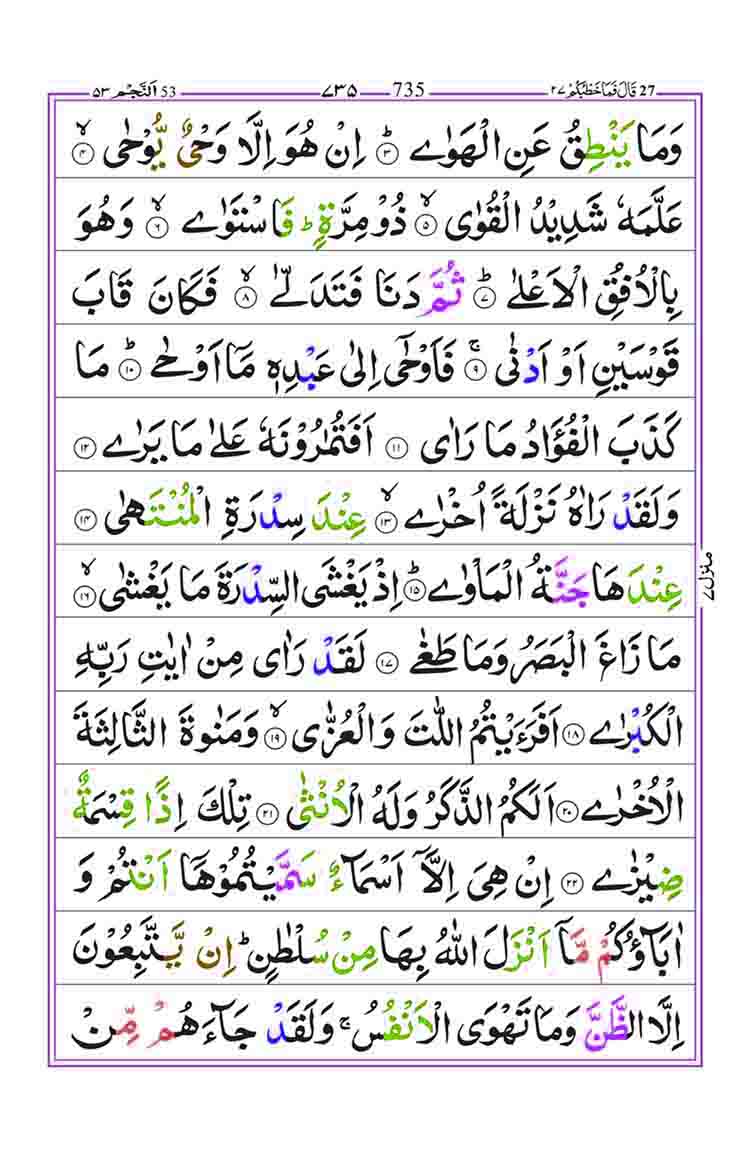 27 قَالَ فَمَا خَطْبُكُمْ ٢٧ 735 ٧٣٥ 53 اَلنَّجْم ٥٣
وَمَا يَنْطِقُ عَنِ الْهَوٰىؕ ۝٣ اِنْ هُوَ اِلَّا وَحْىٌ يُّوْحٰىۙ ۝٤
عَلَّمَهٗ شَدِيْدُ الْقُوٰىۙ ۝٥ ذُوْ مِرَّةٍؕ فَاسْتَوٰىۙ ۝٦ وَهُوَ
بِالْاُفُقِ الْاَعْلٰىؕ ۝٧ ثُمَّ دَنَا فَتَدَلّٰىۙ ۝٨ فَكَانَ قَابَ
قَوْسَيْنِ اَوْ اَدْنٰىۚ ۝٩ فَاَوْحٰۤى اِلٰى عَبْدِهٖ مَاۤ اَوْحٰىؕ ۝١٠ مَا
كَذَبَ الْفُؤَادُ مَا رَاٰى ۝١١ اَفَتُمٰرُوْنَهٗ عَلٰى مَا يَرٰى ۝١٢
وَلَقَدْ رَاٰهُ نَزْلَةً اُخْرٰىۙ ۝١٣ عِنْدَ سِدْرَةِ الْمُنْتَهٰى ۝١٤
عِنْدَهَا جَنَّةُ الْمَاْوٰىؕ ۝١٥ اِذْ يَغْشَى السِّدْرَةَ مَا يَغْشٰىۙ ۝١٦
مَا زَاغَ الْبَصَرُ وَمَا طَغٰى ۝١٧ لَقَدْ رَاٰى مِنْ اٰيٰتِ رَبِّهِ
الْكُبْرٰى ۝١٨ اَفَرَءَيْتُمُ اللّٰتَ وَالْعُزّٰىۙ ۝١٩ وَمَنٰوةَ الثَّالِثَةَ
الْاُخْرٰى ۝٢٠ اَلَكُمُ الذَّكَرُ وَلَهُ الْاُنْثٰى ۝٢١ تِلْكَ اِذًا قِسْمَةٌ
ضِيْزٰى ۝٢٢ اِنْ هِىَ اِلَّاۤ اَسْمَآءٌ سَمَّيْتُمُوْهَاۤ اَنْتُمْ وَ
اٰبَآؤُكُمْ مَّاۤ اَنْزَلَ اللّٰهُ بِهَا مِنْ سُلْطٰنٍؕ اِنْ يَّتَّبِعُوْنَ
اِلَّا الظَّنَّ وَمَا تَهْوَى الْاَنْفُسُۚ وَلَقَدْ جَآءَهُمْ مِّنْ
منزل ٧